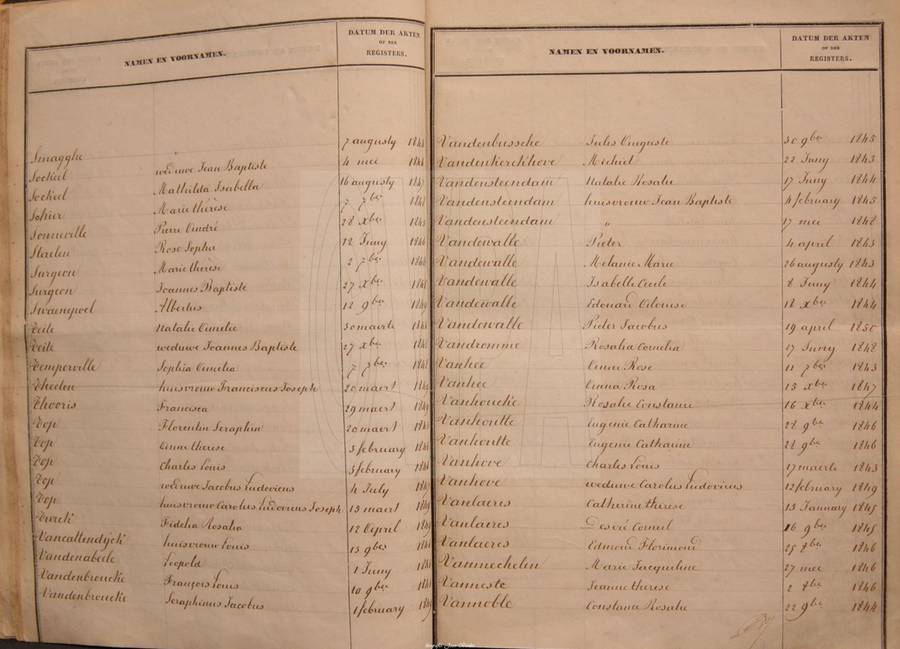 NAMEN EN VOORNAMEN.
DATUM DER AKTEN
OF DER
REGISTERS.
Smagghe " 7 augusty
Sockeel weduwe Jean Baptiste 4 mei
Sockeel Mathilda Isabella 16 augusty
Sohier Marie thérèse 7 7bre
Sonneville Pierre André 28 xbre
Staelen Rose Sophie 12 Juny
Surgeon Marie thérèse 2 7bre
Surgeon Joannes Baptiste 27 xbre
Swaenepoel Albertus 12 9bre
Natalie Amelie 30 maerte
weduwe Joannes Baptiste 27 xbre
Temperville Sophia Amelia 7 7bre
Theelen huisvrouw Franciscus Joseph 20 maert
Thooris Francisca 29 maert
Top Florentin Seraphin 20 maert
Top Anna therese 3 february
Top Charles Louis 3 february
Top weduwe Jacobus Ludovicus 4 July
Top huisvrouw Carolus Ludovicus Joseph 13 maert
Fidelia Rosalia 12 April
Vancaltendijck huisvrouw Louis 13 9bre
Vandenabeele Leopold 1 Juny
Vandenbroucke François Louis 10 9bre
Vandenbroucke Seraphinus Jacobus 1 february
NAMEN EN VOORNAMEN.
DATUM DER AKTEN
OF DER
REGISTERS.
Vandenbussche Julis Auguste 30 9bre 1845
Vandenkerckhove Michiel 22 Juny 1843
Vandensteendam Natalie Rosalie 17 Juny 1844
Vandensteendam huisvrouw Jean Baptiste 4 february 1845
Vandensteendam " 17 mei 1848
Vandewalle Pieter 4 april 1843
Vandewalle Melanie Marie 26 augusty 1843
Vandewalle Isabelle Cecile 8 Juny 1844
Vandewalle Edouard 18 xbre 1844
Vandewalle Pieter Jacobus 19 april 1850
Vandromme Rosalia Cornelia 27 Juny 1848
Vanhee Anne Rose 11 7bre 1843
Vanhee Anna Rosa 13 xbre 1847
Vanhoucke Rosalie Constance 16 xbre 1844
Vanhoutte Eugenie Catharine 28 9bre 1846
Vanhoutte Eugenie Catharine 28 9bre 1846
Vanhove Charles Louis 17 maerte 1843
Vanhove weduwe Carolus Ludovicus 12 february 1849
Vanlaeres Catherine therese 13 January 1845
Vanlaeres Desiré Corneil 16 9bre 1845
Vanlaeres Edmond Florimond 25 8bre 1846
Vanmechelen Marie Jacqueline 27 mei 1846
Vanneste Jeanne therese 2 8bre 1846
Vannoble Constance Rosalie 22 9bre 1844